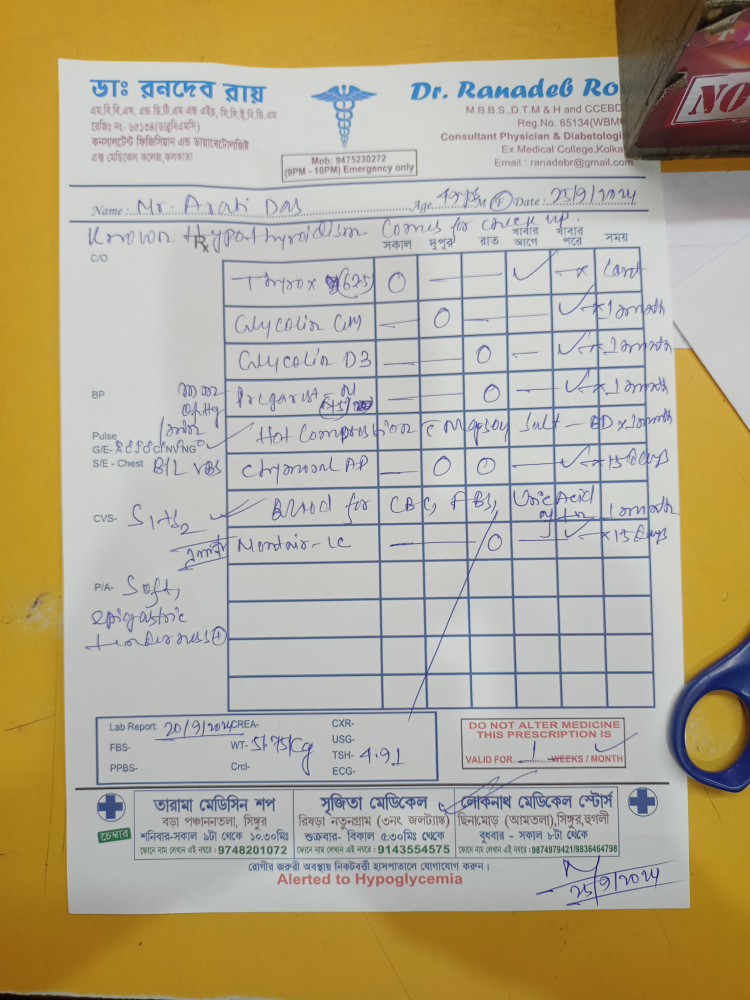 ডাঃ রনদেব রায়
এম.বি.বি.এস. এন্ড ডি.টি.এম এন্ড এইচ, সি.সি.ই.বি.ডি.এম
রেজিঃ নং- ৬৫১৩৪(ডাব্লুবিএমসি)
কনসালটেন্ট ফিজিসিয়ান এন্ড ডায়াবেটোলজিষ্ট
এক্স মেডিকেল কলেজ,কলকাতা
Mob: 9475230272
(9PM - 10PM) Emergency only
Dr. Ranadeb Ro
M.B.B.S.,D.T.M & H and CCEBD
Reg.No. 65134(WBM
Consultant Physician & Diabetologi
Ex.Medical College,Kolka
Email : ranadebr@gmail.com
Name : Mr. Arati Das Age M F Date : 25/9/2024
Known Hypothyroidism Comes for check up.
Rx সকাল দুপুর রাত খাবার আগে খাবার পরে সময়
C/O
Thyrox (62.5) O ✓ × Cont
Glycolin GM O ✓ × 1 month
Glycolin D3 O ✓ × 1 month
BP
mm of Hg
O ✓ × 1 month
Pulse /min
Hot Compression c Mgso4 Salt - BD × 1 month
G/E-
S/E - Chest B/L VBS
Chymoral AP O O ✓ × 15 days
CVS- S1+S2
Blood for CBC, FBS, Uric Acid 1 month
Montair-LC O ✓ × 15 days
P/A- Soft,
epigastric
tenderness +
Lab Report: 20/9/2024 CREA- CXR-
FBS- WT- 51.75kg USG-
PPBS- Crcl- TSH- 4.91
ECG-
DO NOT ALTER MEDICINE
THIS PRESCRIPTION IS
VALID FOR 1 WEEKS / MONTH
চেম্বার
তারামা মেডিসিন শপ
বড়া পঞ্চাননতলা, সিঙ্গুর
শনিবার-সকাল ৯টা থেকে ১০.৩০মিঃ
ফোনে নাম লেখান এই নম্বরে : 9748201072
সৃজিতা মেডিকেল
রিষড়া নতুনগ্রাম (৩নং জলট্যাঙ্ক)
শুক্রবার- বিকাল ৫.৩০মিঃ থেকে
ফোনে নাম লেখান এই নম্বরে : 9143554575
লোকনাথ মেডিকেল স্টোর্স
ছিনামোড় (আমতলা),সিঙ্গুর,হুগলী
বুধবার - সকাল ৮টা থেকে
ফোনে নাম লেখান এই নম্বরে : 9874979421/9836464798
রোগীর জরুরী অবস্থায় নিকটবর্তী হাসপাতালে যোগাযোগ করুন।
Alerted to Hypoglycemia
25/9/2024
NO